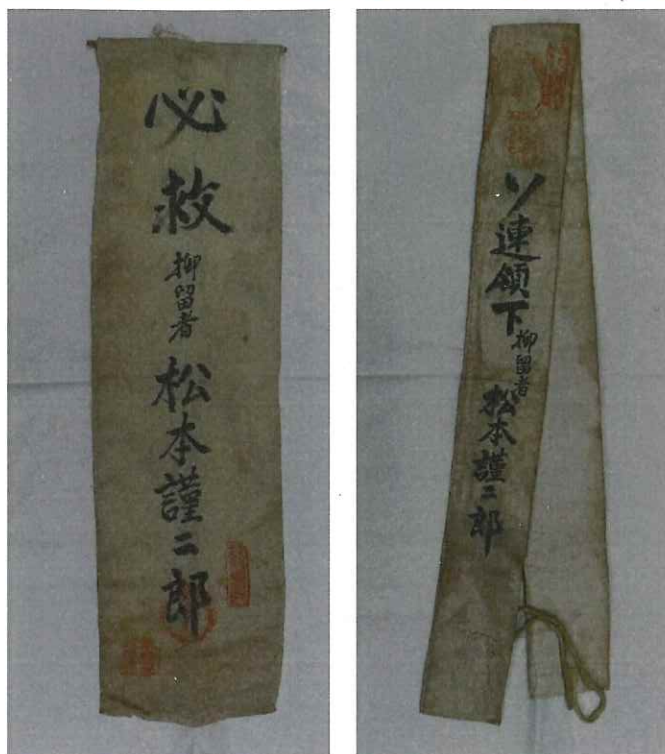 必救
抑留者
松本謹二郎
ソ連領下
抑留者
松本謹二郎